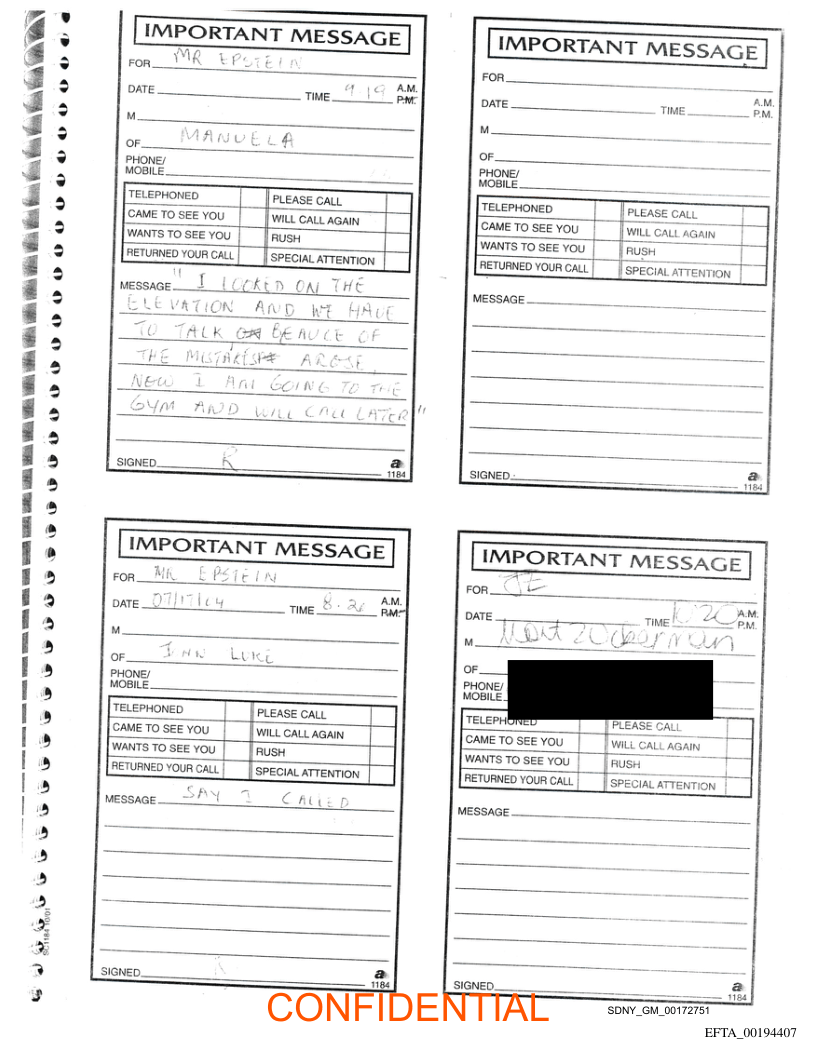 IMPORTANT MESSAGE
FOR MR EPSTEIN
DATE TIME 9 19 A.M.
P.M.
M
OF MANUELA
PHONE/
MOBILE
TELEPHONED PLEASE CALL
CAME TO SEE YOU WILL CALL AGAIN
WANTS TO SEE YOU RUSH
RETURNED YOUR CALL SPECIAL ATTENTION
MESSAGE " I LOOKED ON THE
ELEVATION AND WE HAVE
TO TALK BEAUCE OF
THE AROSE,
NEW I AM GOING TO THE
GYM AND WILL CALL LATER"
SIGNED R
a
1184
IMPORTANT MESSAGE
FOR
DATE TIME A.M.
P.M.
M
OF
PHONE/
MOBILE
TELEPHONED PLEASE CALL
CAME TO SEE YOU WILL CALL AGAIN
WANTS TO SEE YOU RUSH
RETURNED YOUR CALL SPECIAL ATTENTION
MESSAGE
SIGNED
a
1184
IMPORTANT MESSAGE
FOR MR EPSTEIN
DATE 07/17/04 TIME 8.20 A.M.
P.M.
M
OF LUKE
PHONE/
MOBILE
TELEPHONED PLEASE CALL
CAME TO SEE YOU WILL CALL AGAIN
WANTS TO SEE YOU RUSH
RETURNED YOUR CALL SPECIAL ATTENTION
MESSAGE SAY I CALLED
SIGNED R
a
1184
IMPORTANT MESSAGE
FOR JE
DATE TIME 1020 A.M.
P.M.
M Mort Zuckerman
OF
PHONE/
MOBILE
TELEPHONED PLEASE CALL
CAME TO SEE YOU WILL CALL AGAIN
WANTS TO SEE YOU RUSH
RETURNED YOUR CALL SPECIAL ATTENTION
MESSAGE
SIGNED
a
1184
SC1184 10/01
CONFIDENTIAL
SDNY_GM_00172751
EFTA_00194407